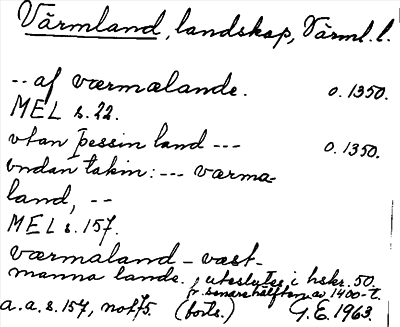 Värmland, landskap, Värml. l.
-- afværmælande. o. 1350.
MEL s. 22.
vtan þessin land --- o. 1350.
vndan takin: --- værma-
land, --
MEL s. 157.
værmaland - væst-
manna lande. uteslutes i hskr. 50.
fr. senare hälften av 1400-t.
a.a. s. 157, not 75. (forts.) G.E. 1963.